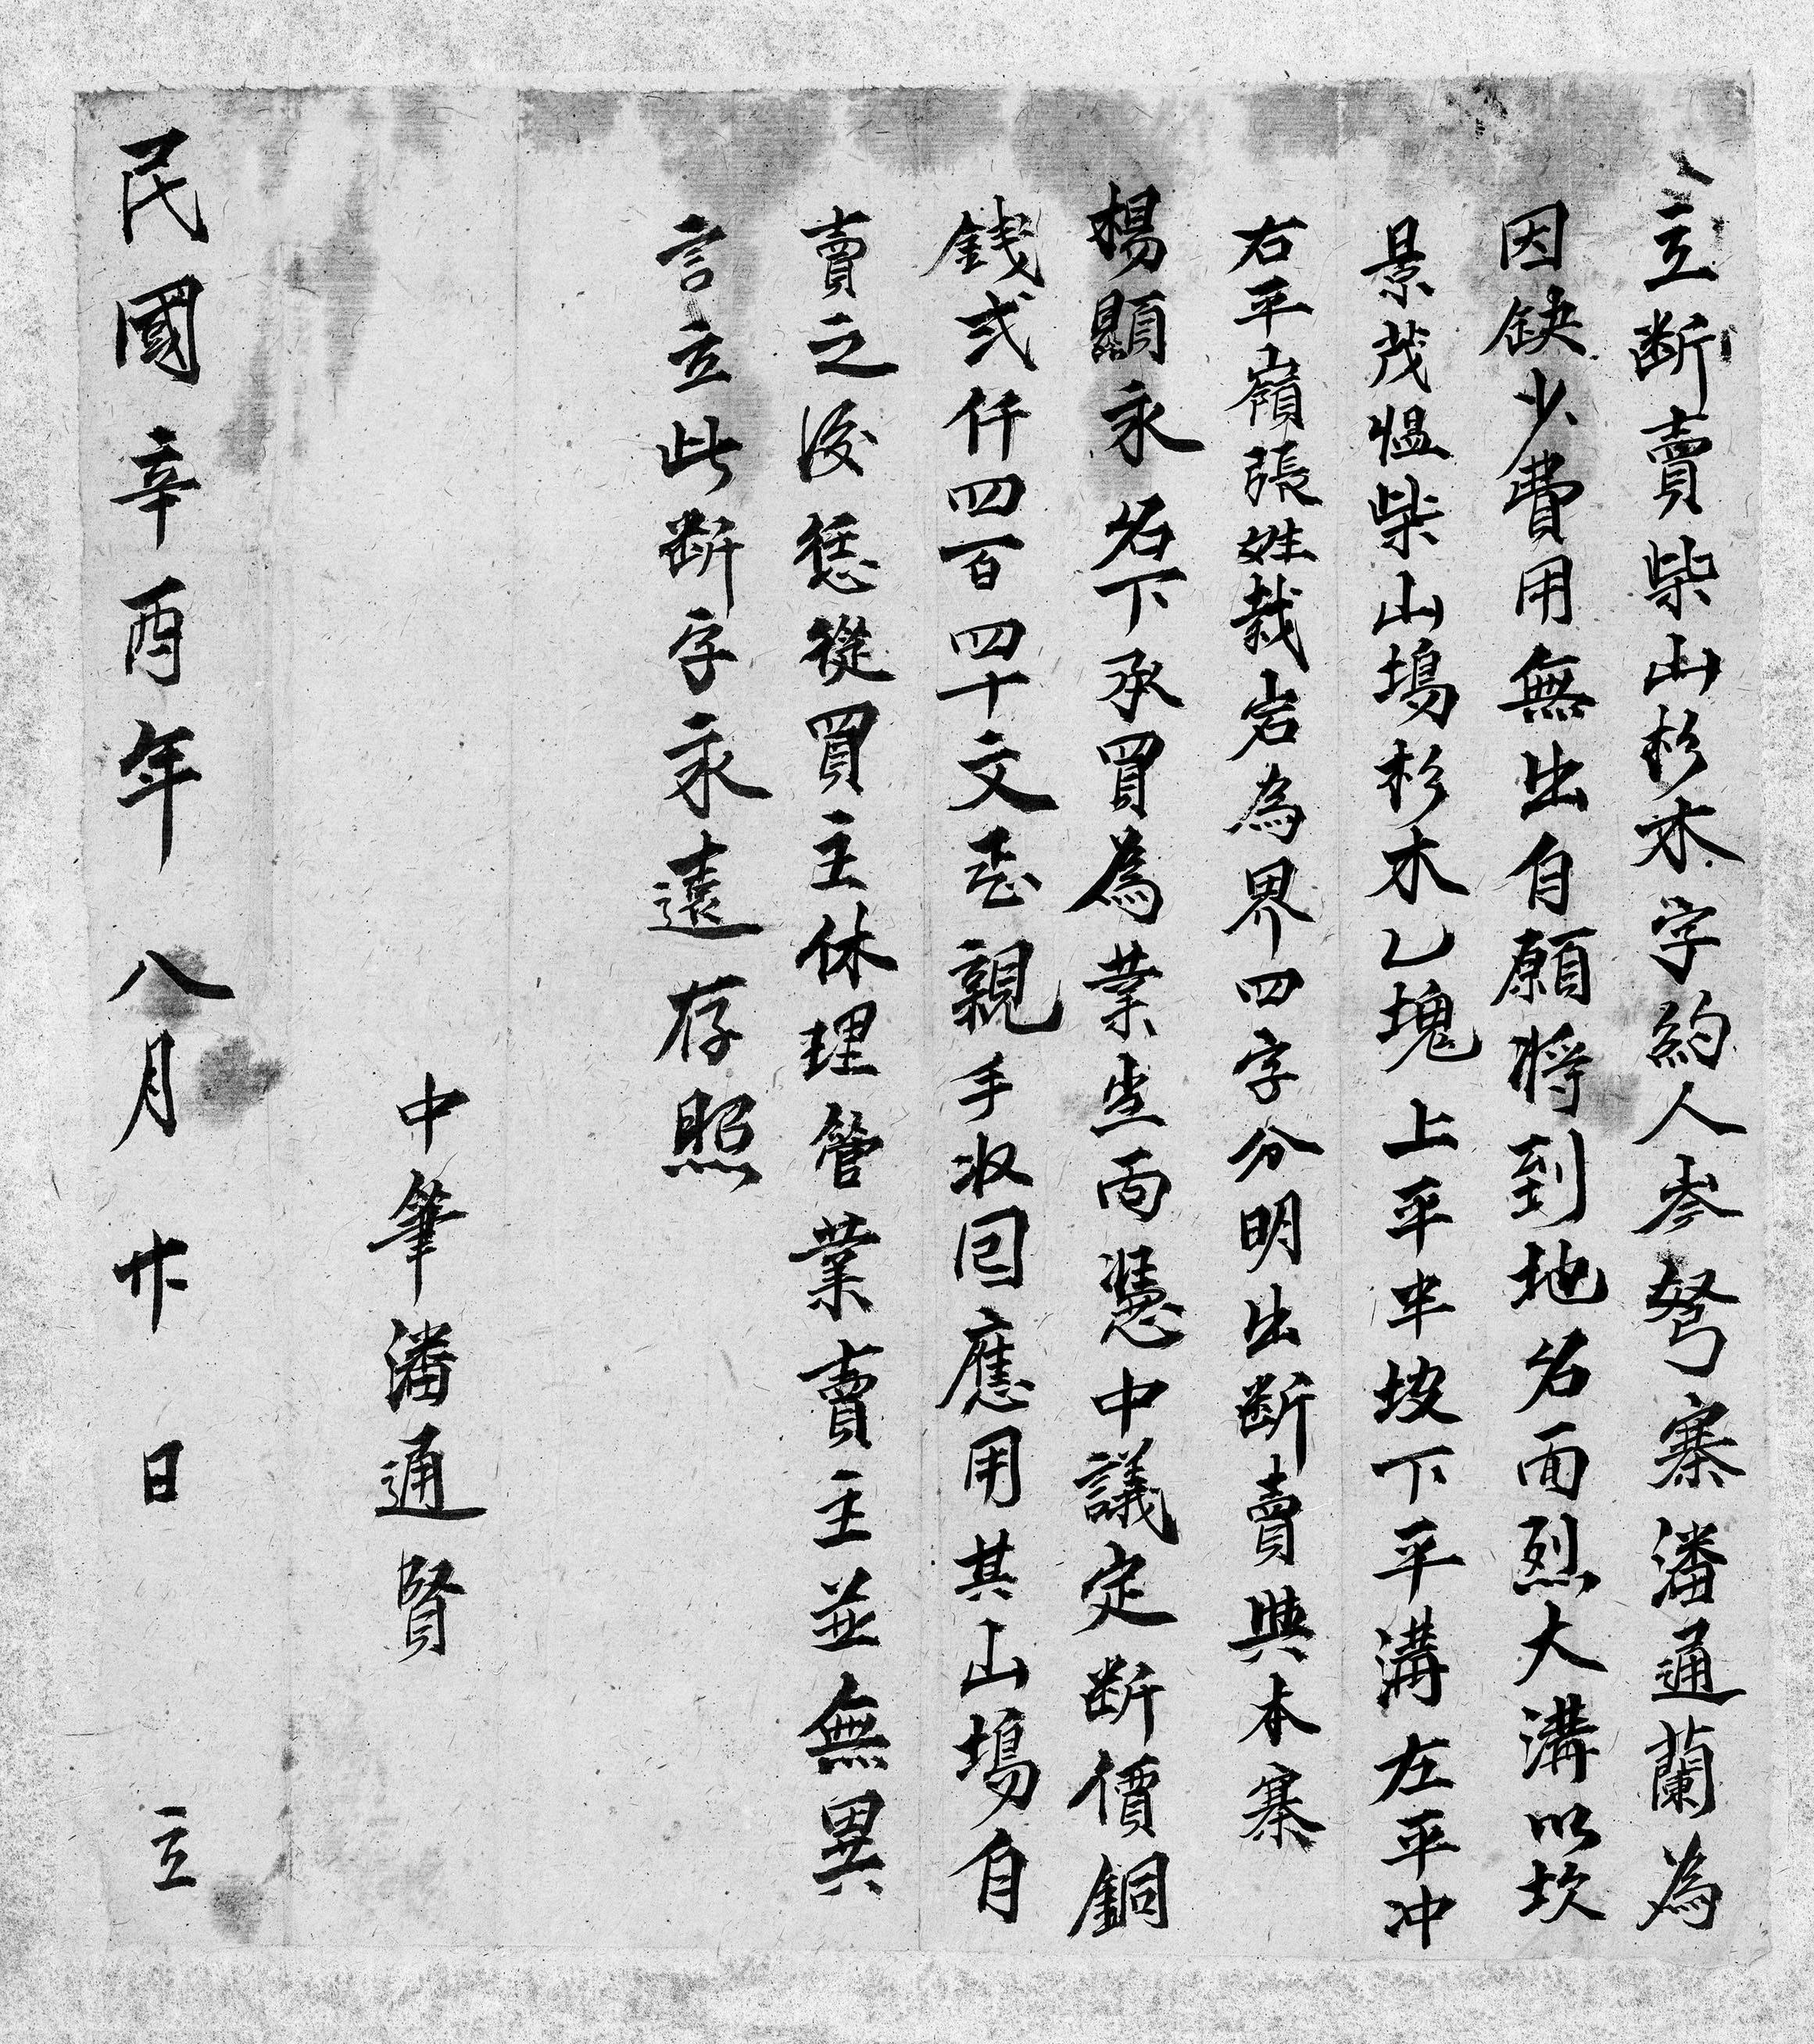 立断賣柴山杉木字約人岑弩寨潘通蘭為
因缺少費用無出自願将到地名面烈大溝以坎
景茂塭柴山塲杉木乙塊上平半坡下平溝左平冲
右平嶺張姓栽岩為界四字分明出断賣與本寨
楊顯永名下承買為業坐面憑中議定断價銅
銭弍仟四百四十文整親手收囘應用其山塲自
賣之後恁從買主休理管業賣主並無異
言立此断字永遠存照
中筆潘通賢
民國辛酉年八月廿日立